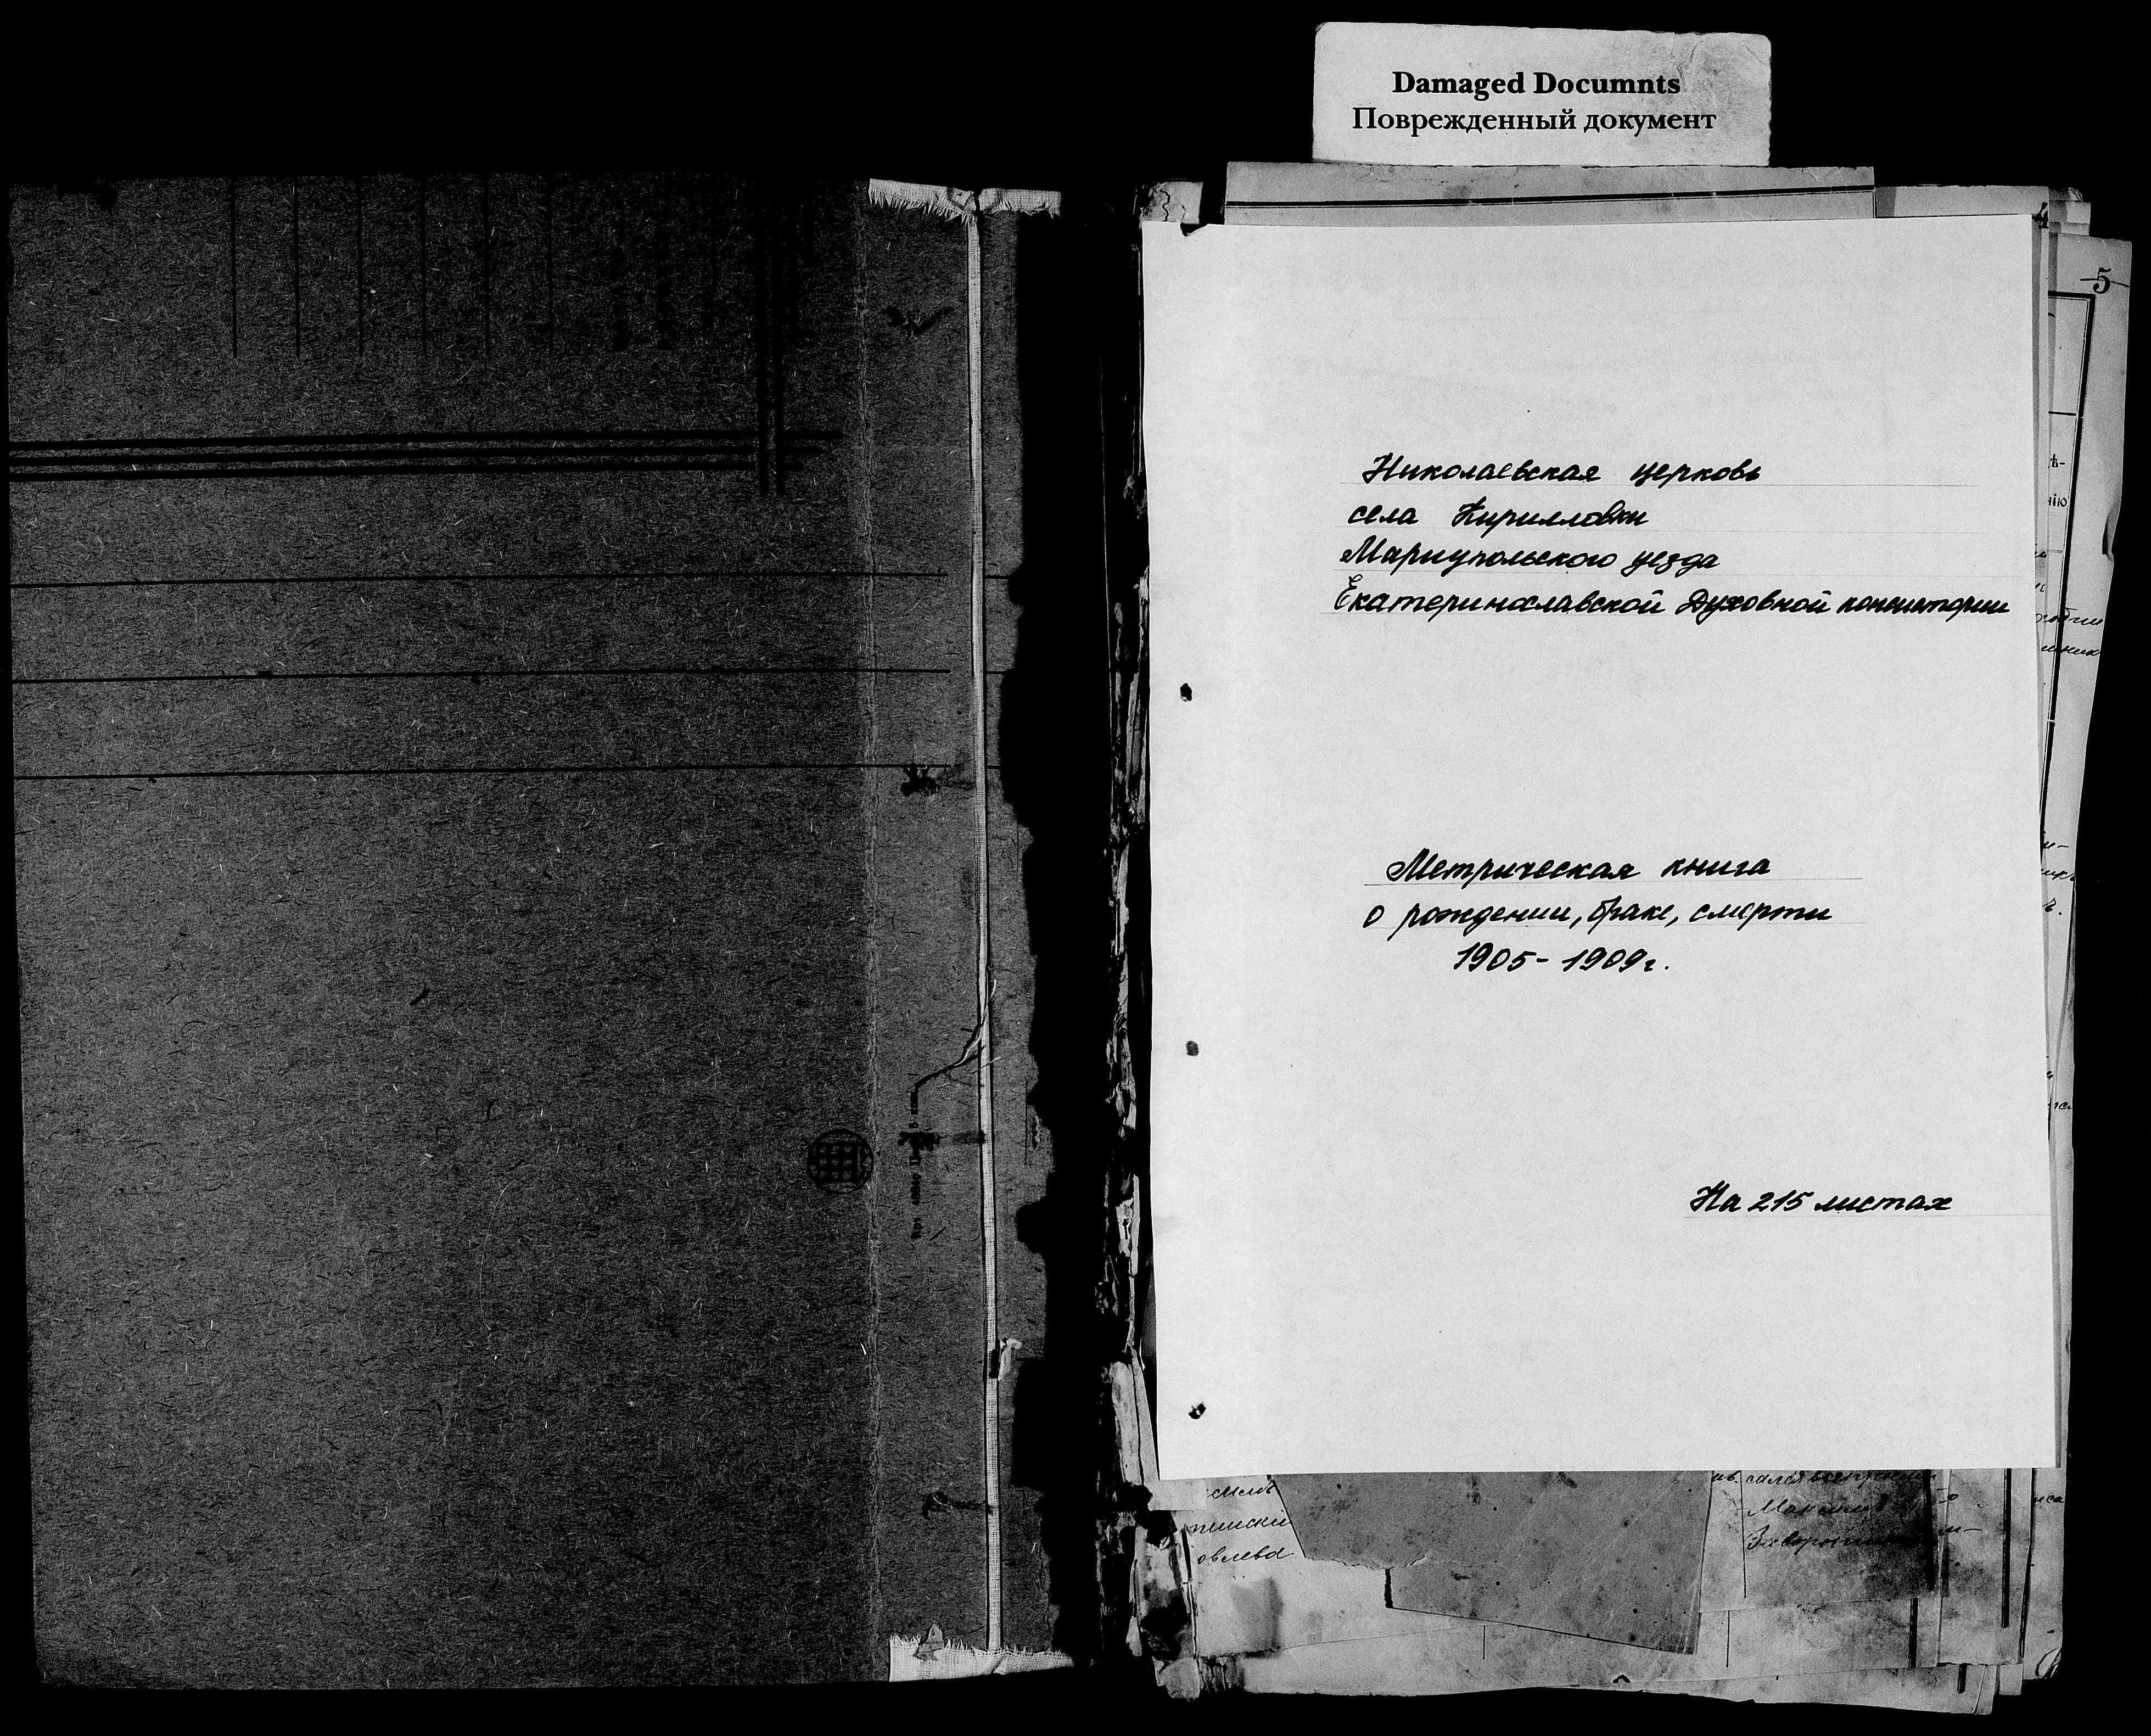 Damaged Documnts
Поврежденный документ
5
Николаевская церковь
села Кирилловки
Мариупольского уезда
Екатеринославской Духовной консистории
Метрическая книга
о рождении, браке, смерти
1905 - 1909 г.
На 215 листах